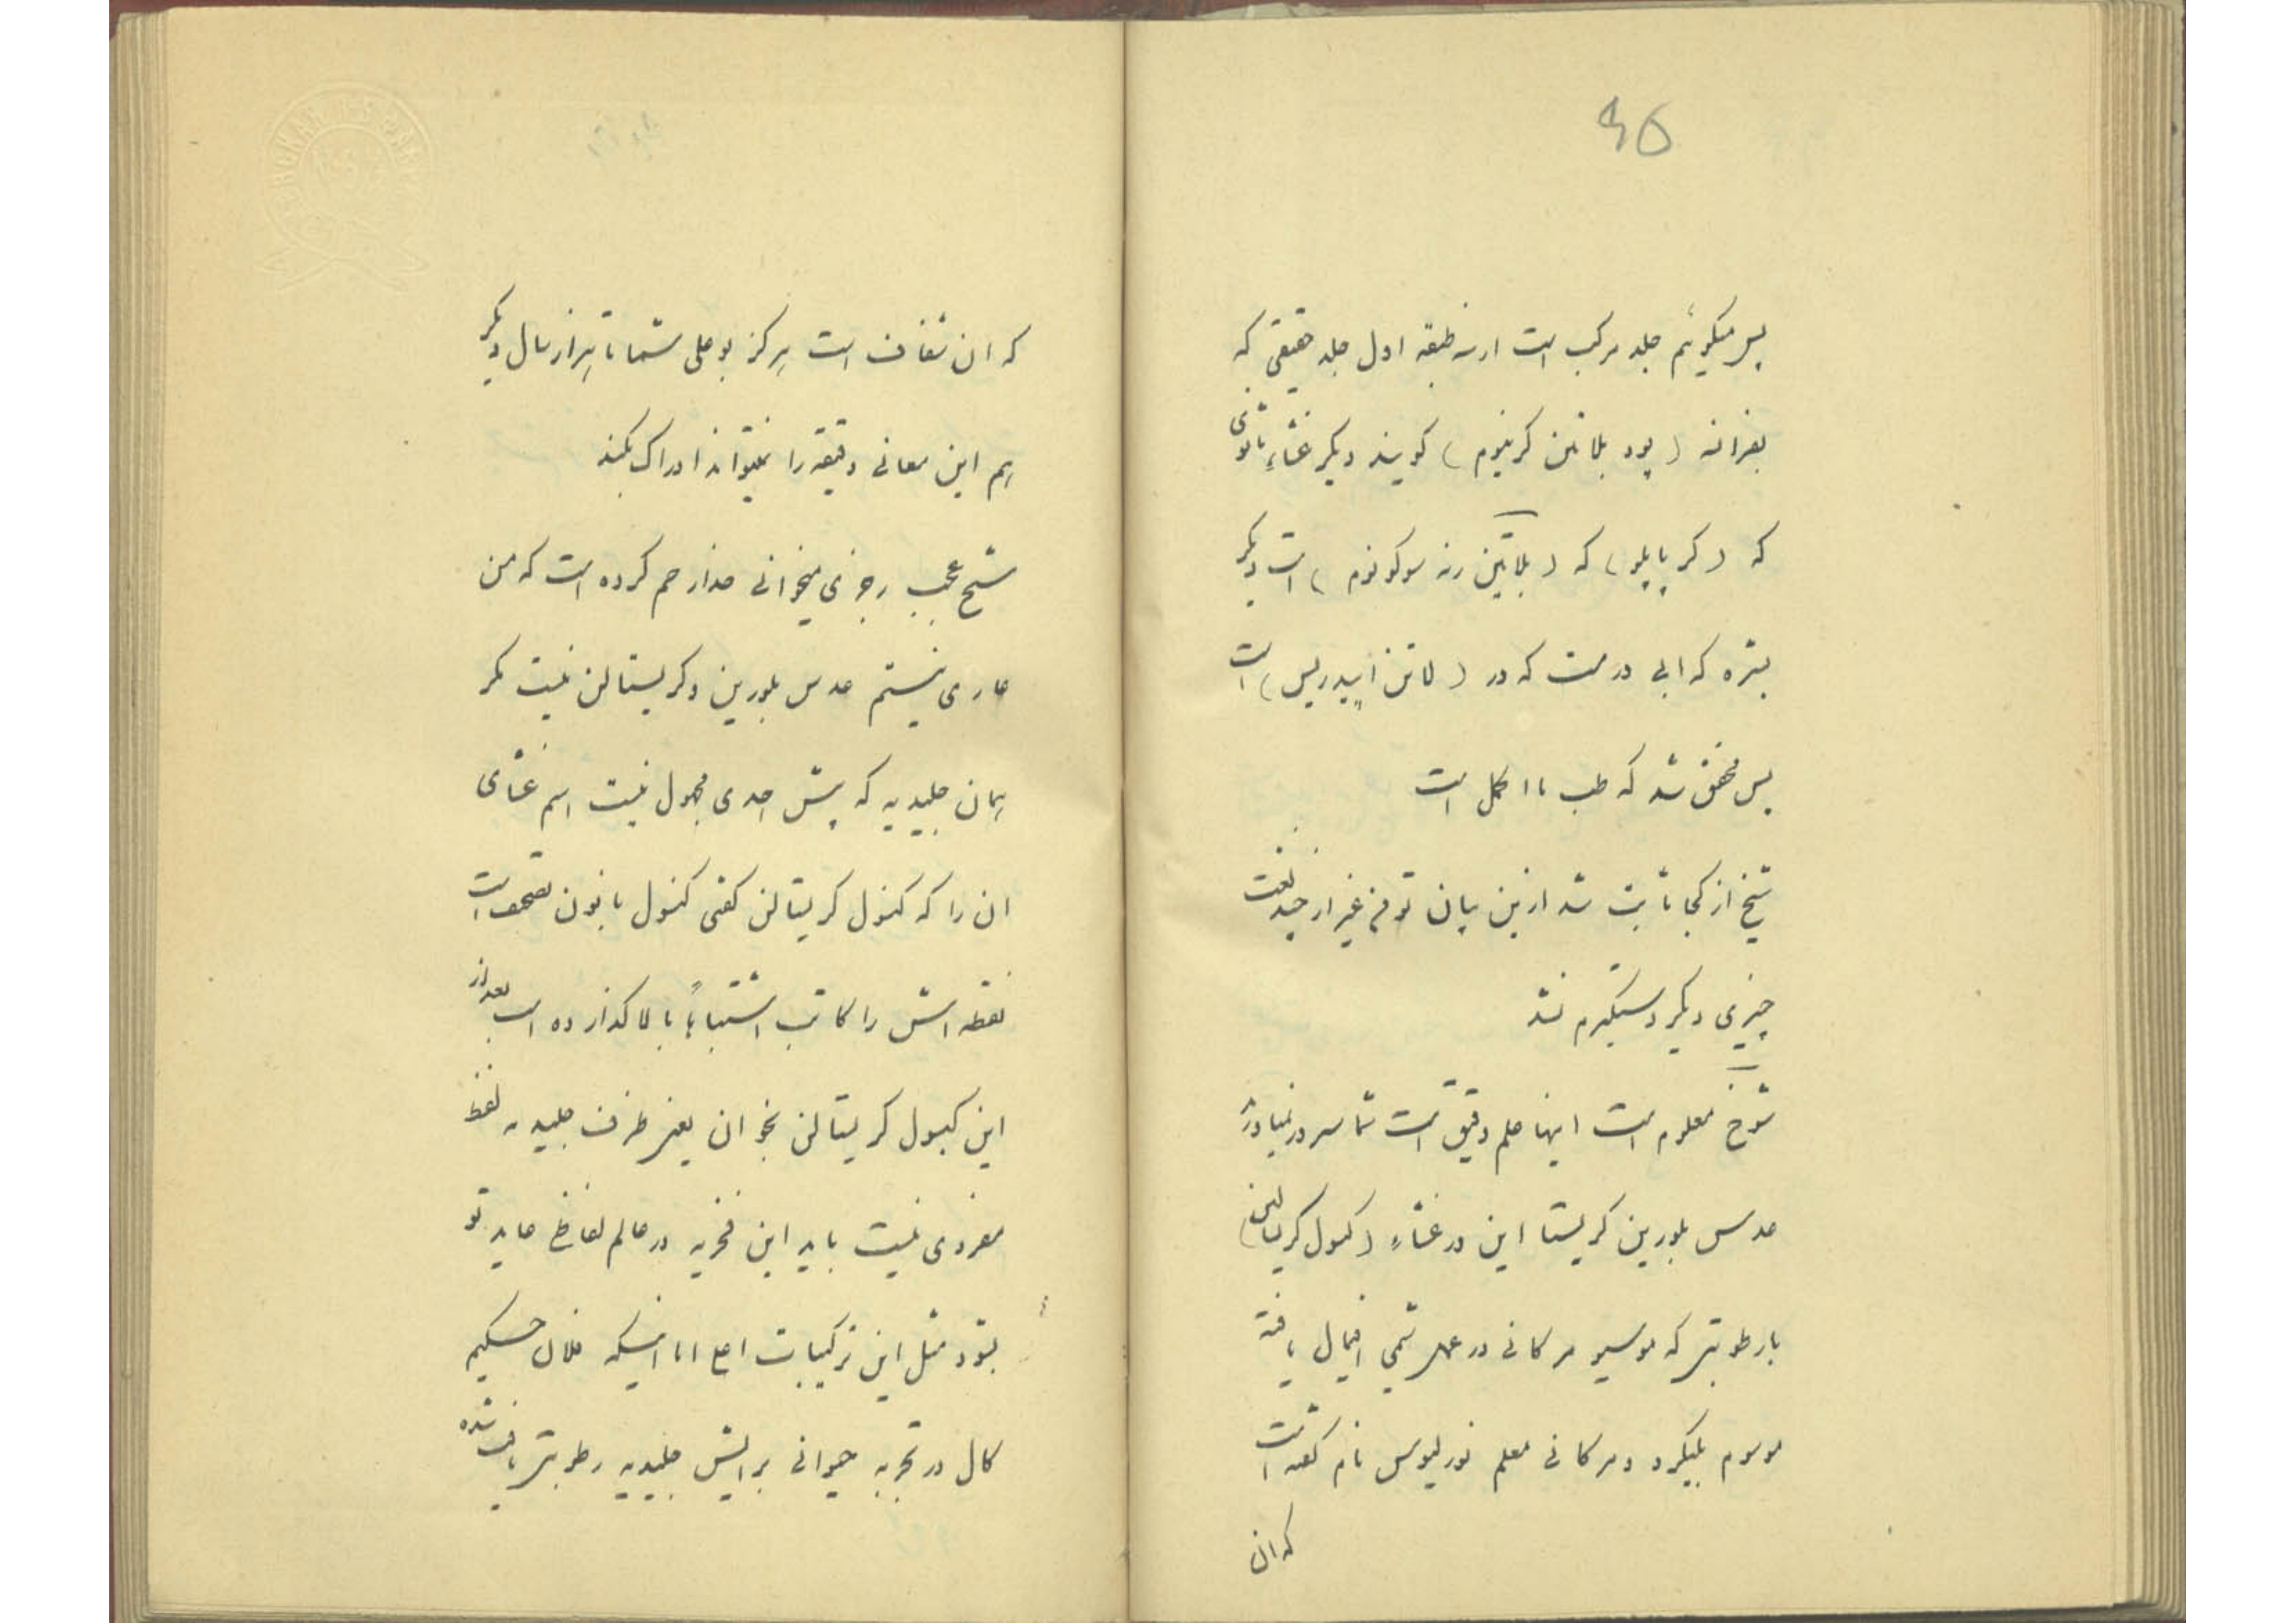 ۹۵
پس میگوئیم جلد مرکب است از سه طبقه اول جلد حقیقی که
بفرانسه (پود بلاتین کریوم) گویند دیگر غشاء ثانوی
که (کرپاپلو) که (بلاتین رته موکونوم) است دیگر
بشره که ابی درمت که در (لاتن اپیدریس) است
پس محقق شد که طب ما اکمل است
شیخ از کجا ثابت شد ازین بیان تو فهم غیر از چند لغت
چیزی دیگر دستگیرم نشد
شوخ معلوم است اینها علم دقیق است شما سر در نمیاورید
عدس بلورین کریستا این در غشاء (کنسول کریستالین)
بارطوبتی که موسیو مرکانی در عمل شمی اقبال یافته
موسوم بلیکرد و مرکانی معلم نورلیوس نام گفته است
که ان
که ان شفاف است هرگز بوعلی شما تا هزار سال دیگر
هم این معانی دقیقه را نمیتواند ادراک بکند
شیخ عجب رجزی میخوانی خدا رحم کرده است که من
عاری نیستم عدس بلورین و کریستالن نیست مگر
همان جلیدیه که پیش احدی مجهول نیست اسم غشای
ان را که کنسول کریستالن گفتی کنسول با نون تصحیف است
نقطه اش را کاتب اشتباهاً بالا گذارده است بعد از
این کبسول کریستالن بخوان یعنی ظرف جلیدیه لفظ
مفردی نیست باید این فخریه در عالم لفاظی عاید تو
بشود مثل این ترکیبات اع اما اینکه فلان حکیم
کال در تجربه حیوانی برایش جلیدیه رطوبتی یافت شده